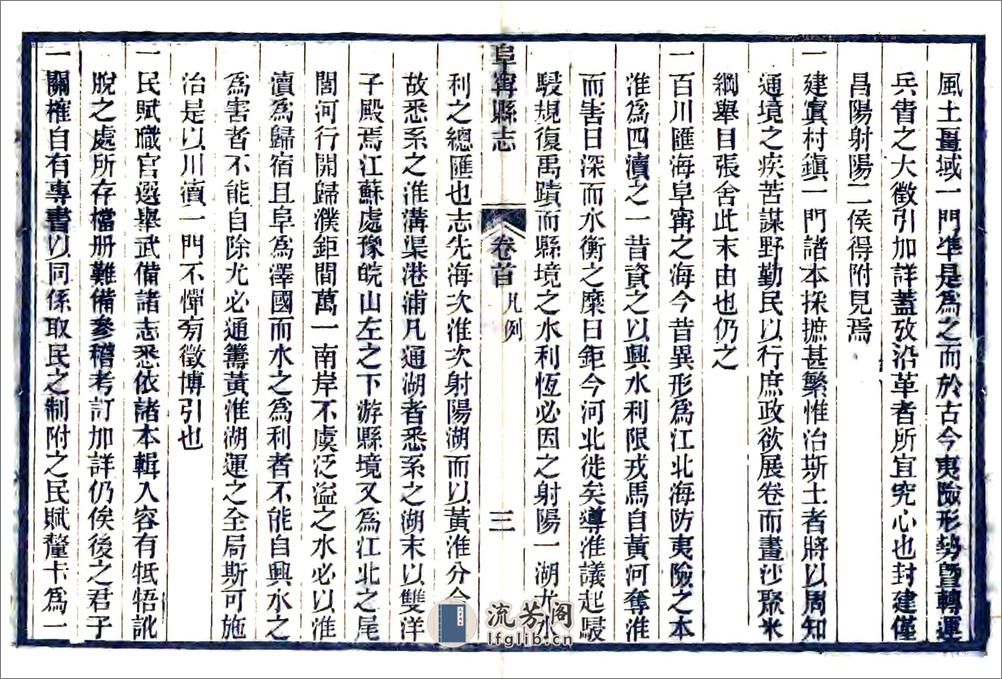 風土畺域一門準是爲之而於古今夷險形勢曁轉運
兵眚之大徵引加詳蓋攷沿革者所宜究心也封建僅
昌陽射陽二侯得附見焉
一建寘村鎭一門諸本採摭甚繁惟治斯土者將以周知
通境之疾苦謀野勤民以行庶政欲展卷而畫沙聚米
綱舉目張舍此末由也仍之
一百川匯海阜甯之海今昔異形爲江北海防夷險之本
淮爲四瀆之一昔資之以興水利限戎馬自黃河奪淮
而害日深而水衡之糜曰鉅今河北徙矣導淮議起駸
駸規復禹蹟而縣境之水利恆必因之射陽一湖尤水
阜甯縣志 卷首 凡例 三
利之總匯也志先海次淮次射陽湖而以黃淮分合
故悉系之淮溝渠港浦凡通湖者悉系之湖末以雙洋
子殿焉江蘇處豫皖山左之下游縣境又爲江北之尾
閭河行開歸濮鉅間萬一南岸不虞泛溢之水必以淮
瀆爲歸宿且阜爲澤國而水之爲利者不能自興水之
爲害者不能自除尤必通籌黃淮湖運之全局斯可施
治是以川瀆一門不憚菊徵博引也
一民賦職官選舉武備諸志悉依諸本輯入容有牴牾訛
脫之處所存檔册難備參稽考訂加詳仍俟後之君子
一關榷自有專書以同係取民之制附之民賦釐卡爲一
流芳阁
lfglib.cn